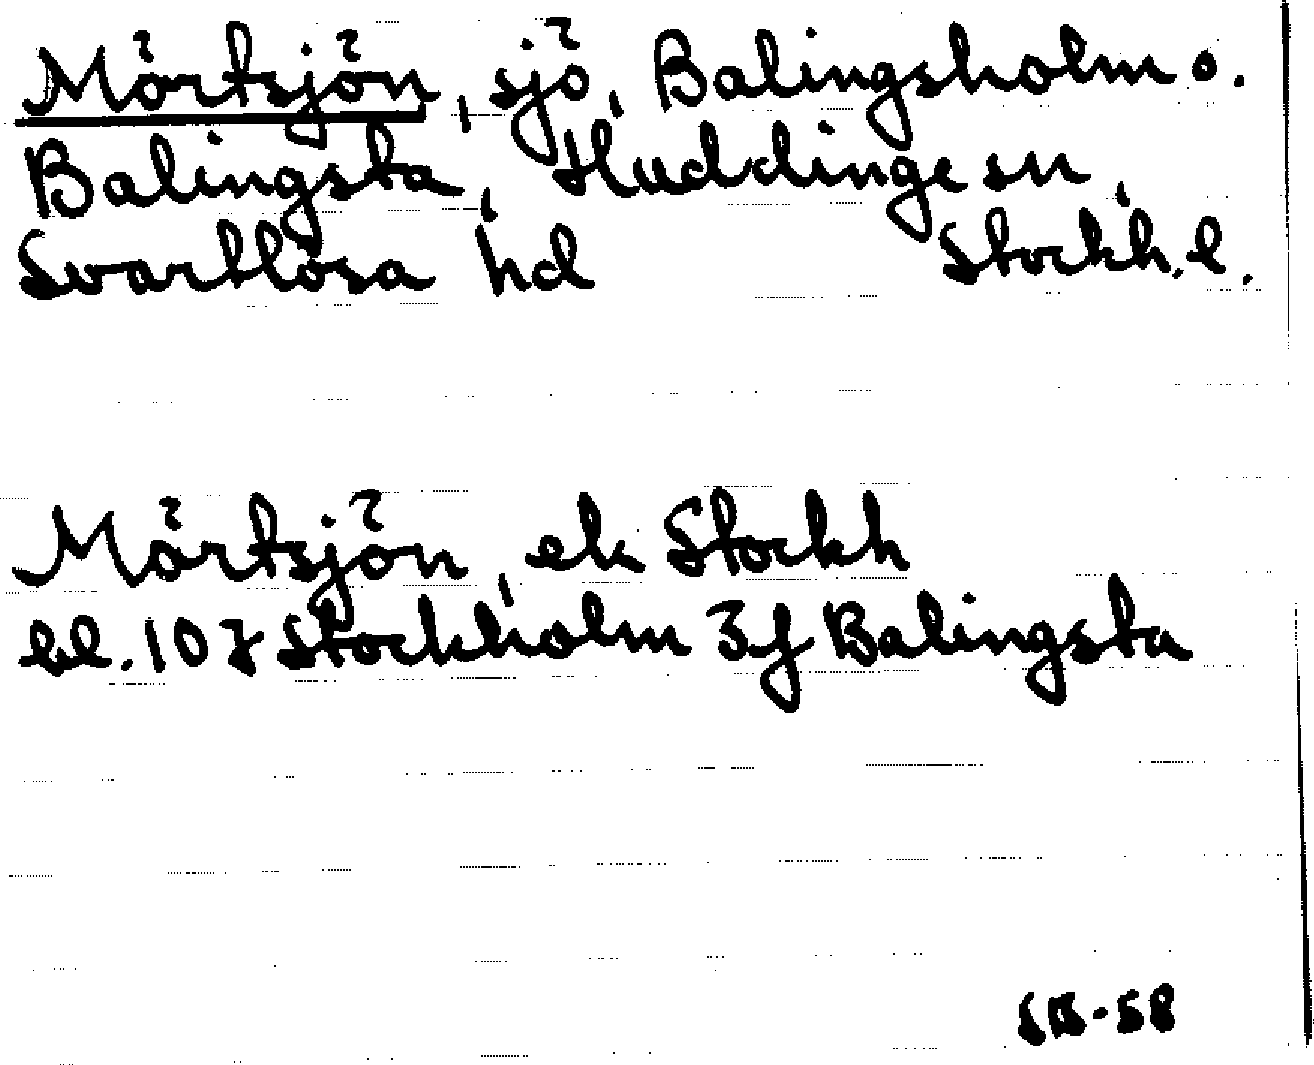 Mörtsjön, sjö, Balingsholm o.
Balingsta, Huddinge sn,
Svartlösa hd Stockh.l.
Mörtsjön, ek Stockh
bl. 107 Stockholm 3f Balingsta
SB-58